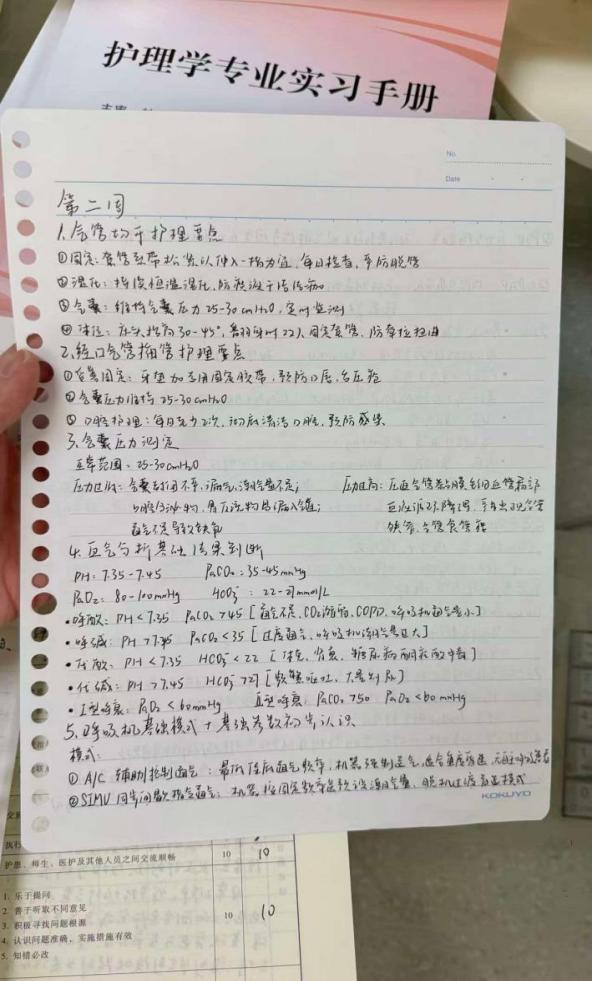 护理学专业实习手册
No.
Date
第二周
1.气管切开护理要点
①固定:套管系带松紧以伸入一指为宜,每日检查,严防脱管
②湿化:持续恒温湿化,防痰液干结
③气囊:维持气囊压力25-30cmH₂O,定时监测
④体位:床头抬高30-45°,翻身时22人固定套管,防牵拉
2.经口气管插管护理要点
①妥善固定:牙垫加专用固定胶带,预防口唇、舌压疮
②气囊压力维持25-30cmH₂O
③口腔护理:每日2次,彻底清洁口腔,预防感染
3.气囊压力测定
正常范围:25-30cmH₂O
压力过低:气囊封闭不严,漏气,潮气量不足; 压力过高:压迫气管黏膜毛细血管
口腔分泌物,胃反流物易漏入气道; 血液循环障碍,
通气不足导致缺氧
4.血气分析基础结果判断
PH:7.35-7.45 PaCO₂:35-45mmHg
PaO₂:80-100mmHg HCO₃⁻:22-27mmol/L
·呼酸:PH<7.35 PaCO₂>45[通气不足、CO₂潴留、COPD、呼吸机通气量小]
·呼碱:PH>7.45 PaCO₂<35[过度通气、呼吸机潮气量过大]
·代酸:PH<7.35 HCO₃⁻<22[休克、肾衰、糖尿病酮症酸中毒]
·代碱:PH>7.45 HCO₃⁻>27[频繁呕吐、大量利尿]
·I型呼衰:PaO₂<60mmHg II型呼衰:PaCO₂>50 PaO₂<60mmHg
5.呼吸机基础模式+基础参数初步认识
模式:
①A/C 辅助控制通气:
②SIMV同步间歇指令通气:机器按固定频率送预设潮气量,脱机过渡
KOKUYO
护患、师生、医护及其他人员之间交流顺畅 10 10
1. 乐于提问
2. 善于听取不同意见
3. 积极寻找问题根源 10 10
4. 认识问题准确,实施措施有效
5. 知错必改